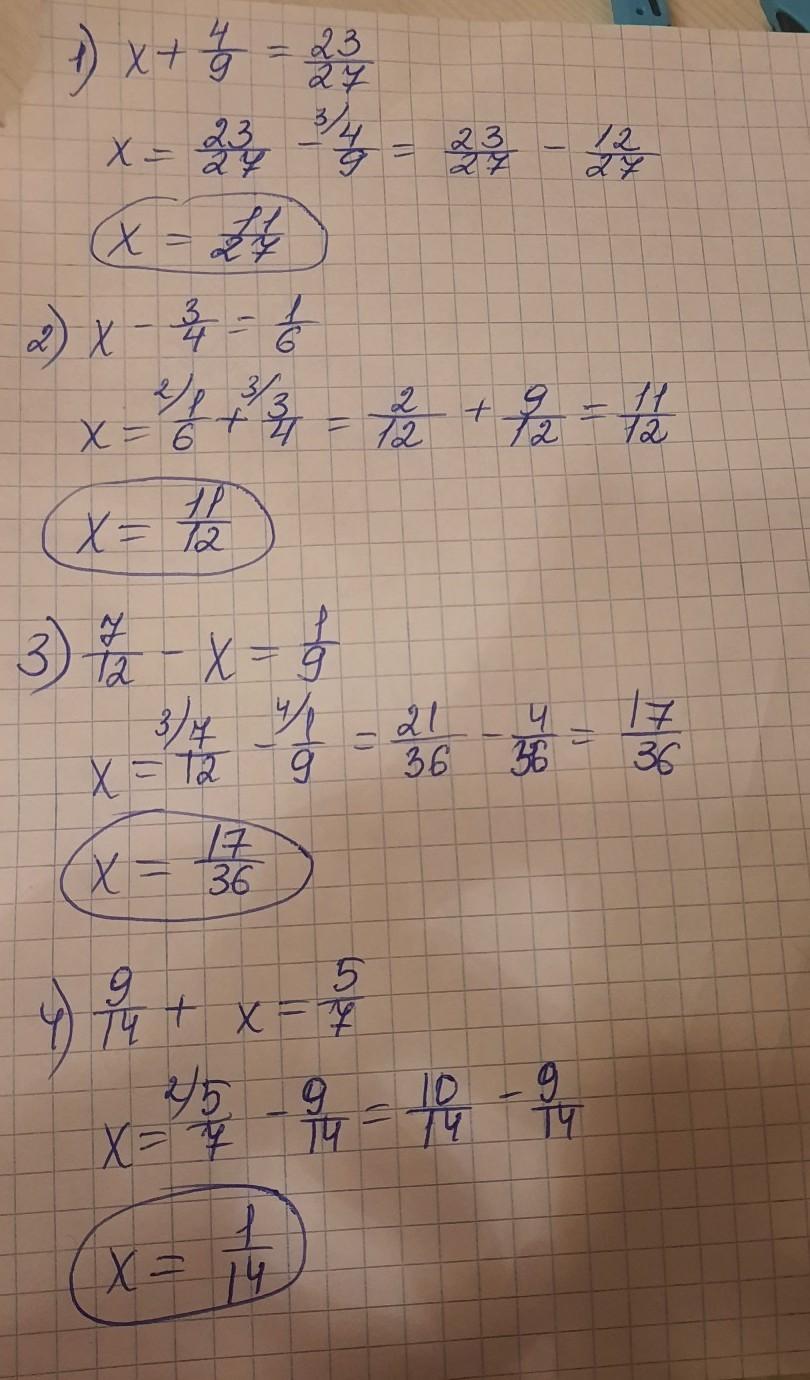 1) x + 4/9 = 23/27
x = 23/27 - 3/ 4/9 = 23/27 - 12/27
x = 11/27
2) x - 3/4 = 1/6
x = 2/ 1/6 + 3/ 3/4 = 2/12 + 9/12 = 11/12
x = 11/12
3) 7/12 - x = 1/9
x = 3/ 7/12 - 4/ 1/9 = 21/36 - 4/36 = 17/36
x = 17/36
4) 9/14 + x = 5/7
x = 2/ 5/7 - 9/14 = 10/14 - 9/14
x = 1/14